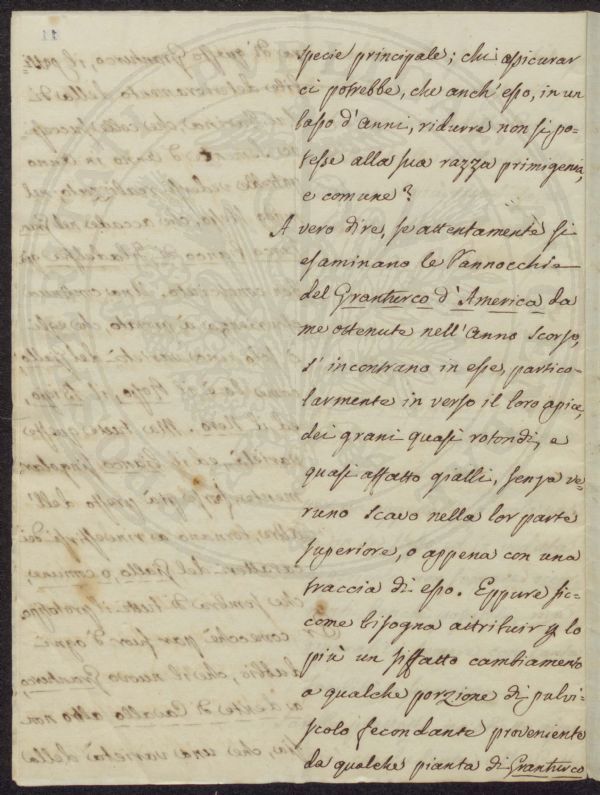 specie principale; chi assicurar
ci potrebbe, che anch'esso, in un
lasso d'Anni, ridurre non si po-
tesse alla sua razza primigenia,
e comune?
A vero dire, se attentamente si
esaminano le Pannocchie
del Granturco d'America da
me ottenute nell'Anno scorso,
s'incontrano in esse, partico-
larmente in verso il loro apice,
dei grani quasi rotondi, e
quasi affatto gialli, senza ve-
runo scavo nella lor parte
superiore, o appena con una
traccia di esso. Eppure sic-
come bisogna attribuir lo
più un siffatto cambiamento
a qualche porzione di pulvi-
scolo fecondante proveniente
da qualche pianta di Granturco